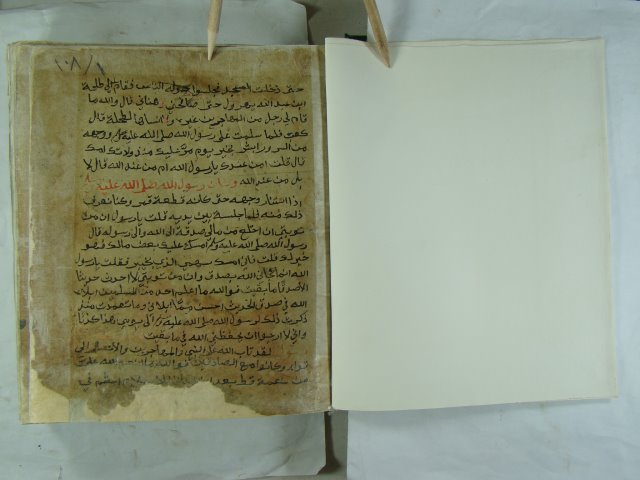 ١٠٨/١
حتى دخلت المسجد فجلس حوله الناس فقام الي طلحة
ابن عبد الله يهرول حتى صافحني وهناني قال والله ما
قام لي رجل من المهاجرين غيره ولا انساها لطلحة قال
كعب فلما سلمت على رسول الله صلى الله عليه وسلم وجهه
من السرور ابشر بخير يوم مر عليك منذ ولدتك امك
قال قلت امن عندك يا رسول الله ام من عند الله قال لا
بل من عند الله وكان رسول الله صلى الله عليه
اذا استنار وجهه حتى كانه قطعة قمر وكنا نعرف
ذلك منه فلما جلست بين يديه قلت يا رسول ان من
توبتي ان انخلع من مالي صدقة الى الله والى رسوله قال
رسول الله صلى الله عليه وسلم امسك عليك بعض مالك فهو
خير لك قلت فاني امسك سهمي الذي بخيبر فقلت يا رسول
الله انما نجاني الله بصدق وان من توبتي لا احدث حديثا
الا صدقا ما بقيت فوالله ما اعلم احد من المسلمين ابلاه
الله في صدق الحديث احسن مما ابلاني وما تعمدت منذ
ذكرت ذلك لرسول الله صلى الله عليه الى يومي هذا كذبا
واني لارجوا ان يحفظني الله فيما بقيت
لقد تاب الله على النبي والمهاجرين والانصار الى
قوله وكونوا مع الصادقين فوالله ما الله علي
من نعمة قط بعد اعظم في